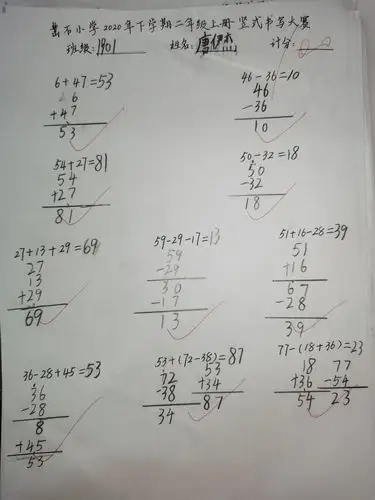 嵩石小学2020年下学期二年级上册竖式书写大赛
班级:1901 姓名:唐伊杰 计分:
6+47=53
6
+47
53
46-36=10
46
-36
10
54+27=81
54
+27
81
50-32=18
50
-32
18
27+13+29=69
27
13
+29
69
59-29-17=13
59
-29
30
-17
13
51+16-28=39
51
+16
67
-28
39
36-28+45=53
36
-28
8
+45
53
53+(72-38)=87
72 53
-38 +34
34 87
77-(18+36)=23
18 77
+36 -54
54 23